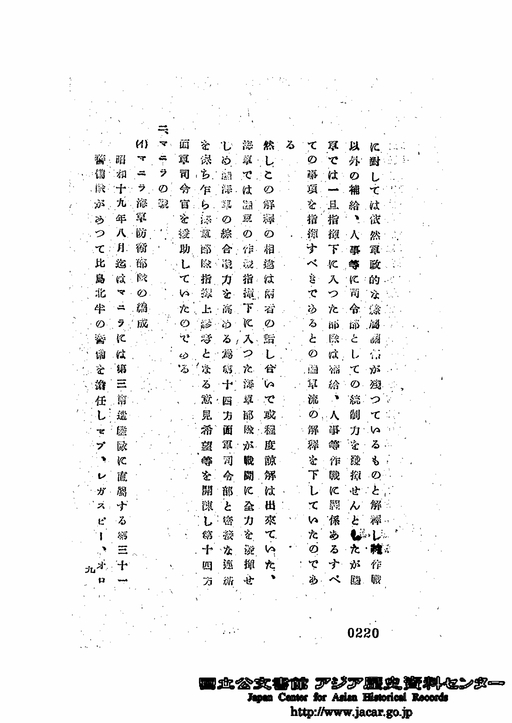 に対しては依然軍政的な隷属関係が残つているものと解釋し純作戦
以外の補給、人事等に司令部としての統制力を発揮せんとしたが陸
軍では一旦指揮下に入つた部隊は補給、人事等作戦に関係あるすべ
ての事項を指揮すべきであるとの陸軍流の解釋を下していたのであ
る
然しこの解釋の相違は両者の話し合いで或程度諒解は出来ていた、
海軍では陸軍の作戦指揮下に入つた海軍部隊が戦闘に全力を発揮せ
しめ陸海軍の綜合戦力を高める為第十四方面軍司令部と密接な連絡
を保ち乍ら海軍部隊指揮上参考となる意見希望等を開陳し第十四方
面軍司令官を援助していたのである
二、マニラの戦
(イ)マニラ海軍防衛部隊の編成
昭和十九年八月迄はマニラには第三南遣艦隊に直属する第三十一
警備隊があつて比島北半の警備を擔任しセブ、レガスピー、オロ
九
0220
国立公文書館 アジア歴史資料センター
Japan Center for Asian Historical Records
http://www.jacar.go.jp